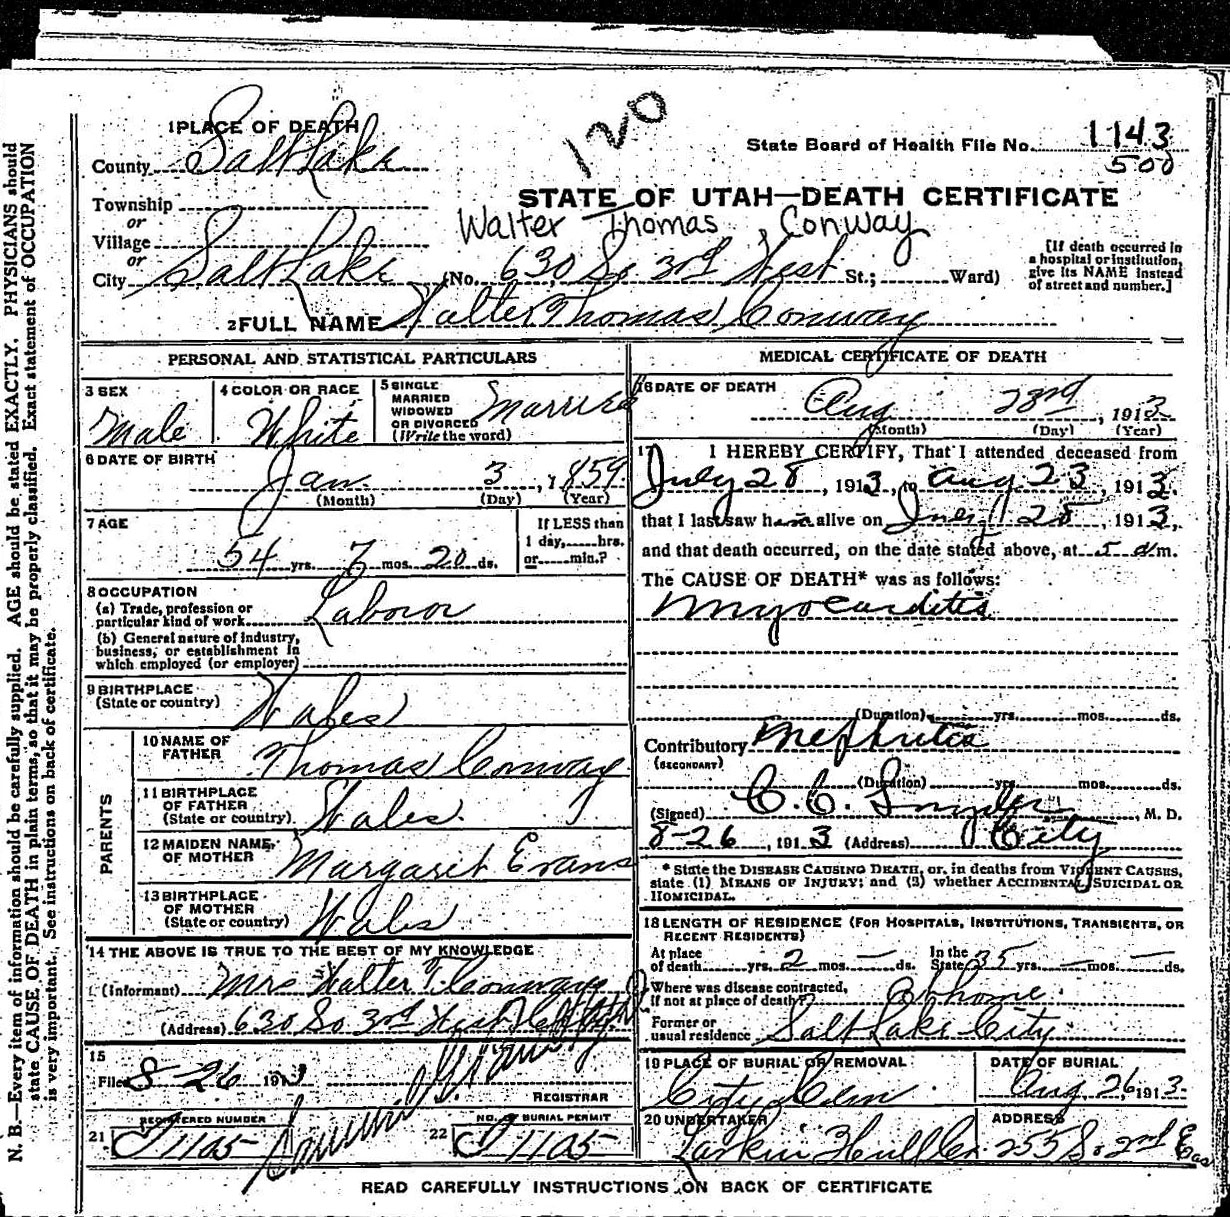 120
1 PLACE OF DEATH
County Salt Lake
State Board of Health File No. 1143
500
STATE OF UTAH—DEATH CERTIFICATE
Township
or
Village
or
City Salt Lake (No. 630 So 3rd West St.; Ward)
Walter Thomas Conway
[If death occurred in a hospital or institution, give its NAME instead of street and number.]
2 FULL NAME Walter Thomas Conway
PERSONAL AND STATISTICAL PARTICULARS
3 SEX Male
4 COLOR OR RACE White
5 SINGLE MARRIED WIDOWED OR DIVORCED (Write the word) Married
6 DATE OF BIRTH Jan 3, 1859
(Month) (Day) (Year)
7 AGE 54 yrs. 7 mos. 20 ds.
If LESS than 1 day, hrs. or min.?
8 OCCUPATION
(a) Trade, profession or particular kind of work Laboror
(b) General nature of industry, business, or establishment in which employed (or employer)
9 BIRTHPLACE (State or country) Wales
PARENTS
10 NAME OF FATHER Thomas Conway
11 BIRTHPLACE OF FATHER (State or country) Wales.
12 MAIDEN NAME OF MOTHER Margaret Evans
13 BIRTHPLACE OF MOTHER (State or country) Wales
14 THE ABOVE IS TRUE TO THE BEST OF MY KNOWLEDGE
(Informant) Mrs Walter T. Conway
(Address) 630 So 3rd West
15
Filed 8-26 1913
REGISTRAR
21 REGISTERED NUMBER 1105
22 NO. OF BURIAL PERMIT 1105
MEDICAL CERTIFICATE OF DEATH
16 DATE OF DEATH Aug 23rd, 1913
(Month) (Day) (Year)
17 I HEREBY CERTIFY, That I attended deceased from
July 28, 1913, to Aug 23, 1913.
that I last saw him alive on 28, 1913,
and that death occurred, on the date stated above, at 5 m.
The CAUSE OF DEATH* was as follows:
Myocarditis
(Duration) yrs. mos. ds.
Contributory (SECONDARY) Nephritis
(Duration) yrs. mos. ds.
(Signed) C. C. Snyder, M. D.
8-26, 1913 (Address) City
* State the DISEASE CAUSING DEATH, or, in deaths from VIOLENT CAUSES, state (1) MEANS OF INJURY; and (2) whether ACCIDENTAL, SUICIDAL OR HOMICIDAL.
18 LENGTH OF RESIDENCE (FOR HOSPITALS, INSTITUTIONS, TRANSIENTS, OR RECENT RESIDENTS)
At place of death yrs. 2 mos. — ds. In the State 35 yrs. — mos. — ds.
Where was disease contracted, if not at place of death? At home.
Former or usual residence Salt Lake City.
19 PLACE OF BURIAL OR REMOVAL City Cem
DATE OF BURIAL Aug 26, 1913
20 UNDERTAKER Larkin Hull Co.
ADDRESS 255 So 2nd East
READ CAREFULLY INSTRUCTIONS ON BACK OF CERTIFICATE
N. B.—Every item of information should be carefully supplied. AGE should be stated EXACTLY. PHYSICIANS should
state CAUSE OF DEATH in plain terms, so that it may be properly classified. Exact statement of OCCUPATION
is very important. See instructions on back of certificate.